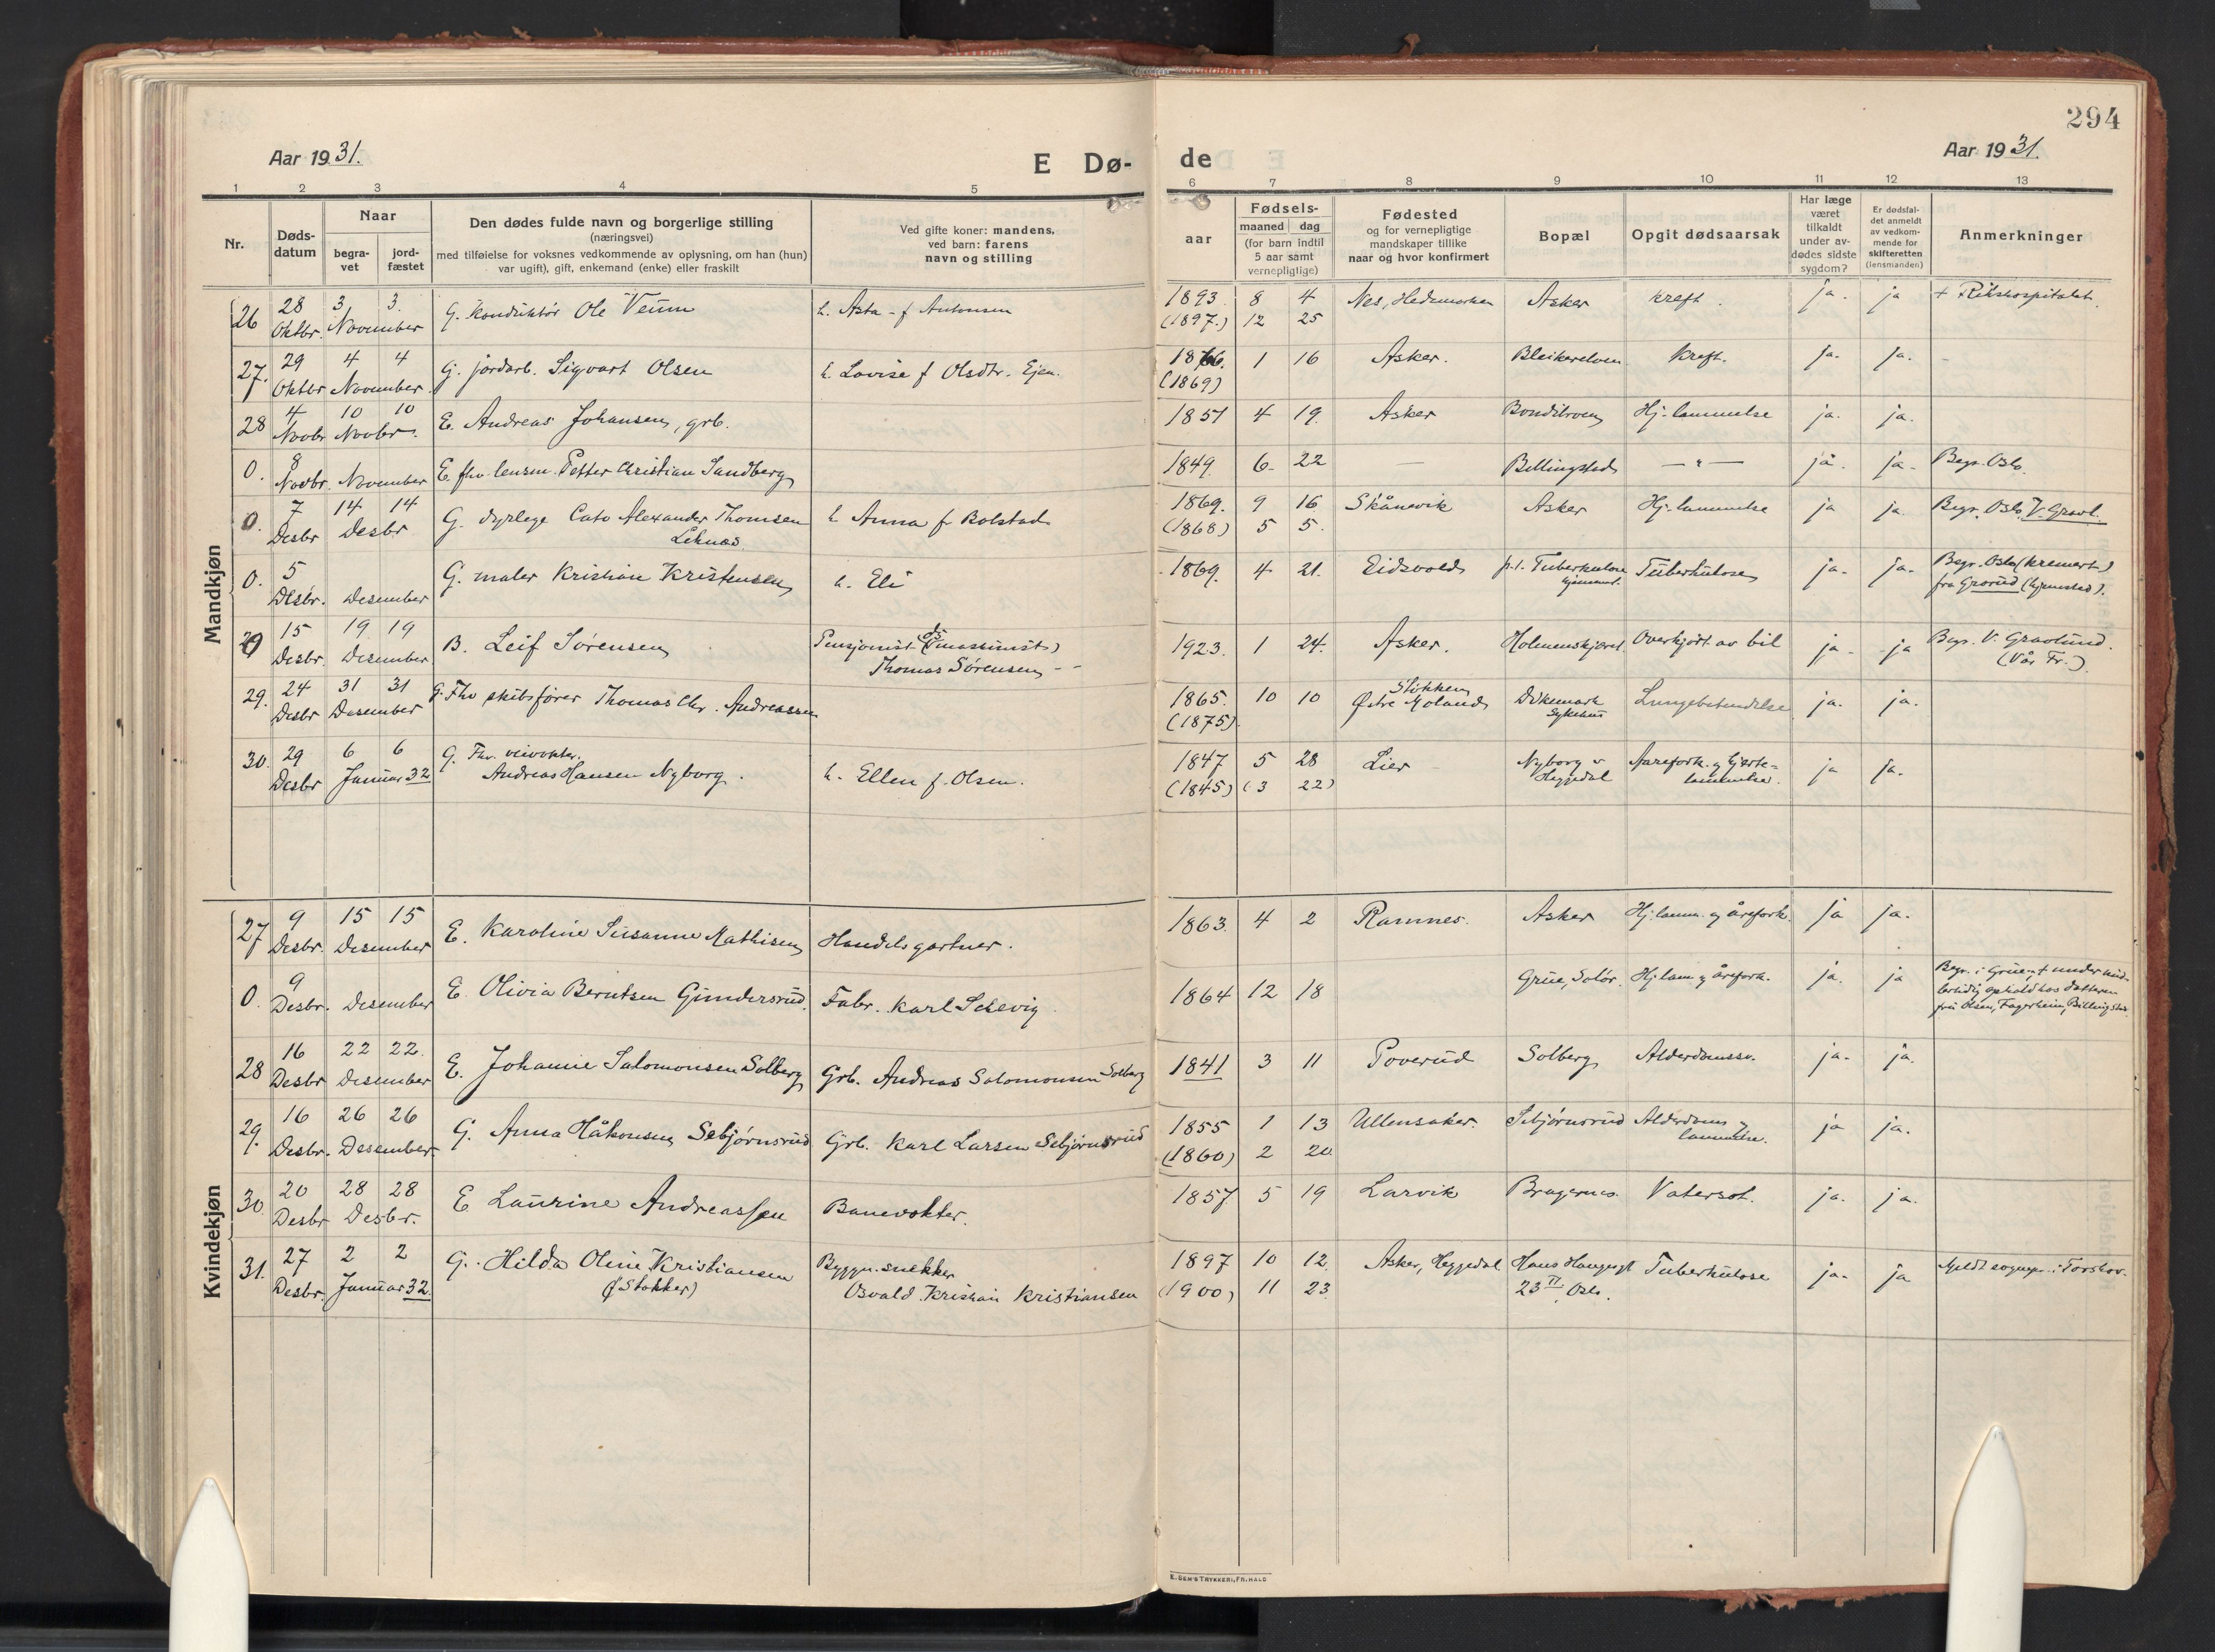 294
Aar 19 31.
E Dø-
de
Aar 19 31.
1 2 3 4 5 6 7 8 9 10 11 12 13
Nr.
Døds-
datum
Naar
begra-
vet
jord-
fæstet
Den dødes fulde navn og borgerlige stilling
(næringsvei)
med tilføielse for voksnes vedkommende av oplysning, om han (hun)
var ugift), gift, enkemand (enke) eller fraskilt
Ved gifte koner: mandens,
ved barn: farens
navn og stilling
aar
Fødsels-
maaned dag
(for barn indtil
5 aar samt
vernepligtige)
Fødested
og for vernepligtige
mandskaper tillike
naar og hvor konfirmert
Bopæl
Opgit dødsaarsak
Har læge
været
tilkaldt
under av-
dødes sidste
sygdom?
Er dødsfal-
det anmeldt
av vedkom-
mende for
skifteretten
(lensmanden)
Anmerkninger
Mandkjøn
26 28 3 3. G. konduktør Ole Veum h. Asta - f Antonsen 1893. 8 4 Nes, Hedemarken Asker kreft. ja. ja + Rikshospitalet.
Oktbr. November (1897.) 12 25
27. 29 4 4 G. jordarb. Sigvart Olsen h. Lovise f Olsdtr. Ejen. 1866. 1 16 Asker. Bleikerelven Kreft. ja. ja. -
Oktbr November (1869)
28 4 10 10 E. Andreas Johansen, grb. 1851 4 19. Asker Hj. lammelse ja. ja.
Novbr Novbr.
0. 8 E. fhv. lensm. Petter Christian Sandberg 1849. 6- 22 — Billingstad — " — ja. ja. Begr. Oslo.
Novbr. November
0. 7 14 14 G. dyrlege Cato Alexander Thomsen h Anna f Rolstad. 1869. 9 16 Skånevik Asker Hj. lammelse ja ja. Begr. Oslo, V. Gravl.
Desbr Desbr Leknæs. (1868) 5 5.
0. 5 G. maler Kristian Kristensen h. Eli 1869. 4 21. Eidsvold p.t. Tuberkulose Tuberkulose ja. ja. Begr. Oslo (kremert)
Desbr. Desember hjemmet. fra Grorud (hjemsted).
29 15 19 19 B. Leif Sørensen Pensjonist (maskinist) 1923. 1 24. Asker. Holmenskjæret Overkjørt av bil ja. ja Begr. V. Gravlund.
Desbr. Desember Thomas Sørensen (Vår Fr.).
29. 24 31 31 G. Fhv skibsfører Thomas Chr. Andreassen 1865. 10 10 Stokken Dikemark Lungebetendelse ja. ja.
Desbr Desember (1875). Østre Moland sykehus
30. 29 6 6 G. Fhv. veivokter. 1847 5 28 Lier Nyborg v Aarefork. og hjerte- ja ja.
Desbr Januar 32 Andreas Hansen Nyborg. h. Ellen f. Olsen. (1845) (3 22) Heggedal lammelse.
Kvindekjøn
27 9 15 15 E. Karoline Susanne Mathisen Handelsgartner. 1863. 4 2 Ramnes. Asker Hj. lamm. og årefork. ja ja.
Desbr. Desember
0. 9 E. Olivia Berntsen Gundersrud. Fabr. Karl Schevig 1864 12 18 Grue, Solør. Hj. lam og årefork. ja. ja Begr. i Grue, + under mid-
Desbr. Desember lertidig ophold hos datteren
fru Olsen, Fagerheim, Billingstad.
28 16 22 22. E. Johanne Salomonsen Solberg Grb. Andreas Salomonsen Solberg 1841 3 11 Poverud Solberg Alderdomssv. ja. ja.
Desbr Desember
29. 16 26 26 G. Anna Håkonsen Sebjørnsrud Grb. Karl Larsen Sebjørnsrud 1855 1 13 Ullensaker. Sebjørnsrud Alderdoms og ja ja.
Desbr. Desember (1860) 2 20. lammelse.
30. 20 28 28 E Laurine Andreassen Banevokter. 1857 5 19 Larvik Bragernes. Vatersot. ja. ja.
Desbr Desbr.
31. 27 2 2 G. Hilda Oline Kristiansen Byggn. snekker 1897 10 12. Asker, Heggedal Hans Haugesgt Tuberkulose ja. ja Meldt sogepr. i Torshov.
Desbr. Januar 32 (f Stokker) Osvald Kristian Kristiansen (1900) 11 23. 23 II, Oslo.
E. SEM'S TRYKKERI, FR.HALD